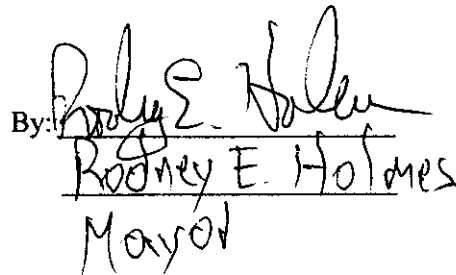 By: Rodney E. Holmes
Rodney E. Holmes
Mayor